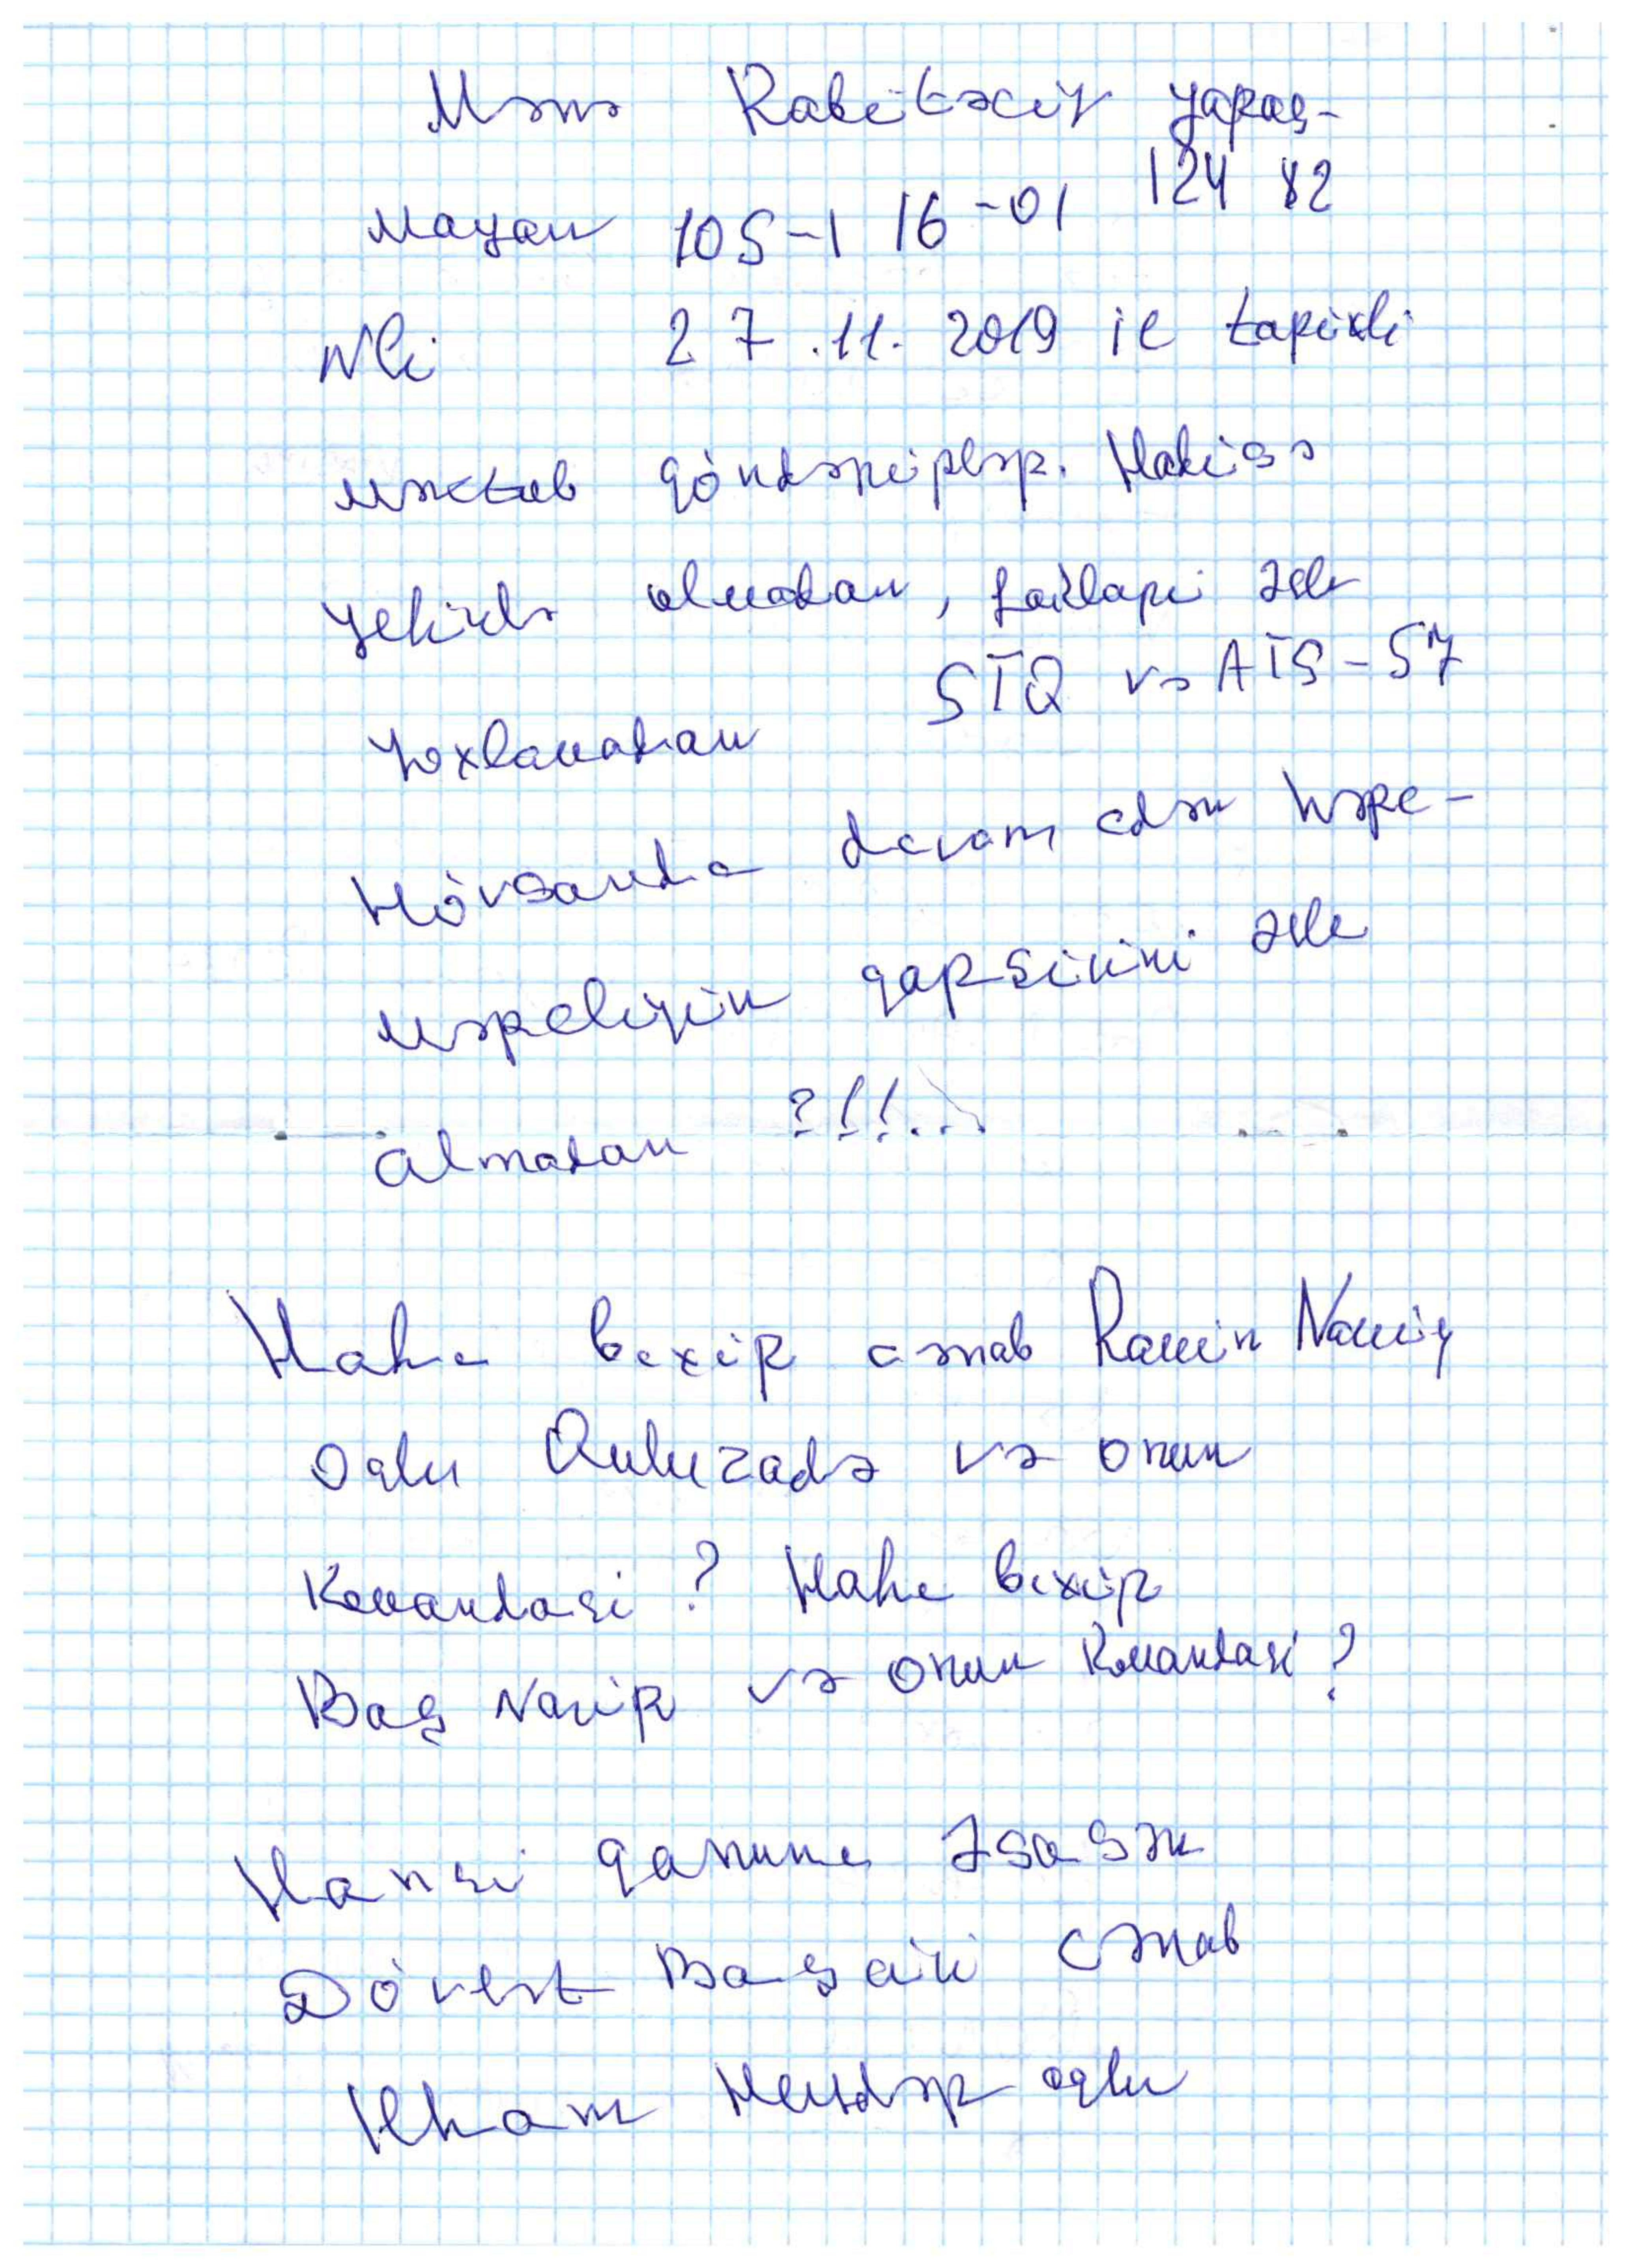 Mənə Rabitəçiy yaraş-
mayan 105-1 16-01 124 82
Nli 27.11.2019 il tarixli
məktub göndəriplər. Hadisə
yerində olmadan, faktlari ələ
yoxlamadan STQ və ATS-57
Hövsanda davam edən hərc-
mərcliyin qarsisini ələ
almadan ?!!...
Haha baxir cənab Ramin Namiq
oqlu Quluzadə və onun
Komandasi? Haha baxir
Baş Nazir və onun Komandasi?
Hansi qanuna əsasən
Dövlət Başçisi cənab
Ilham Heydər oqlu